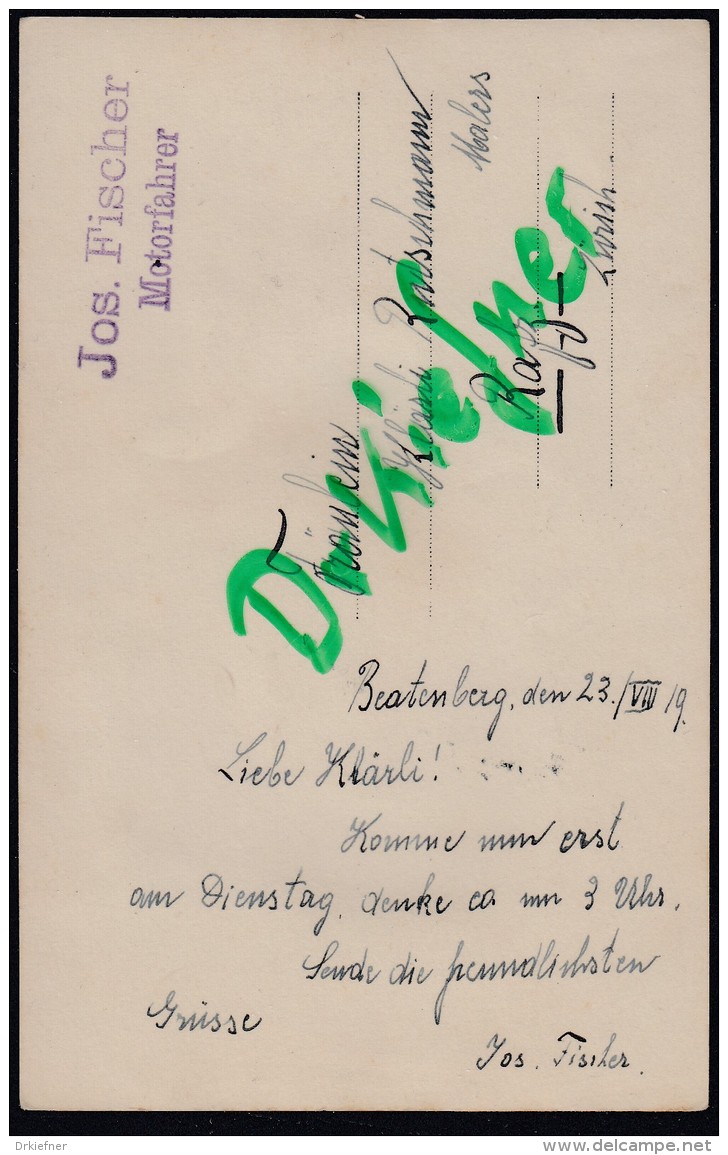 Jos. Fischer
Motorfahrer
Fräulein
Klärli Rutschmann
Malers
Rafz
Zürich.
Dr Kiefner
Beatenberg, den 23./VIII 19.
Liebe Klärli!
Komme nun erst
am Dienstag, denke ca um 3 Uhr.
Sende die freundlichsten
Grüsse
Jos. Fischer.
Drkiefner
delcampe.net